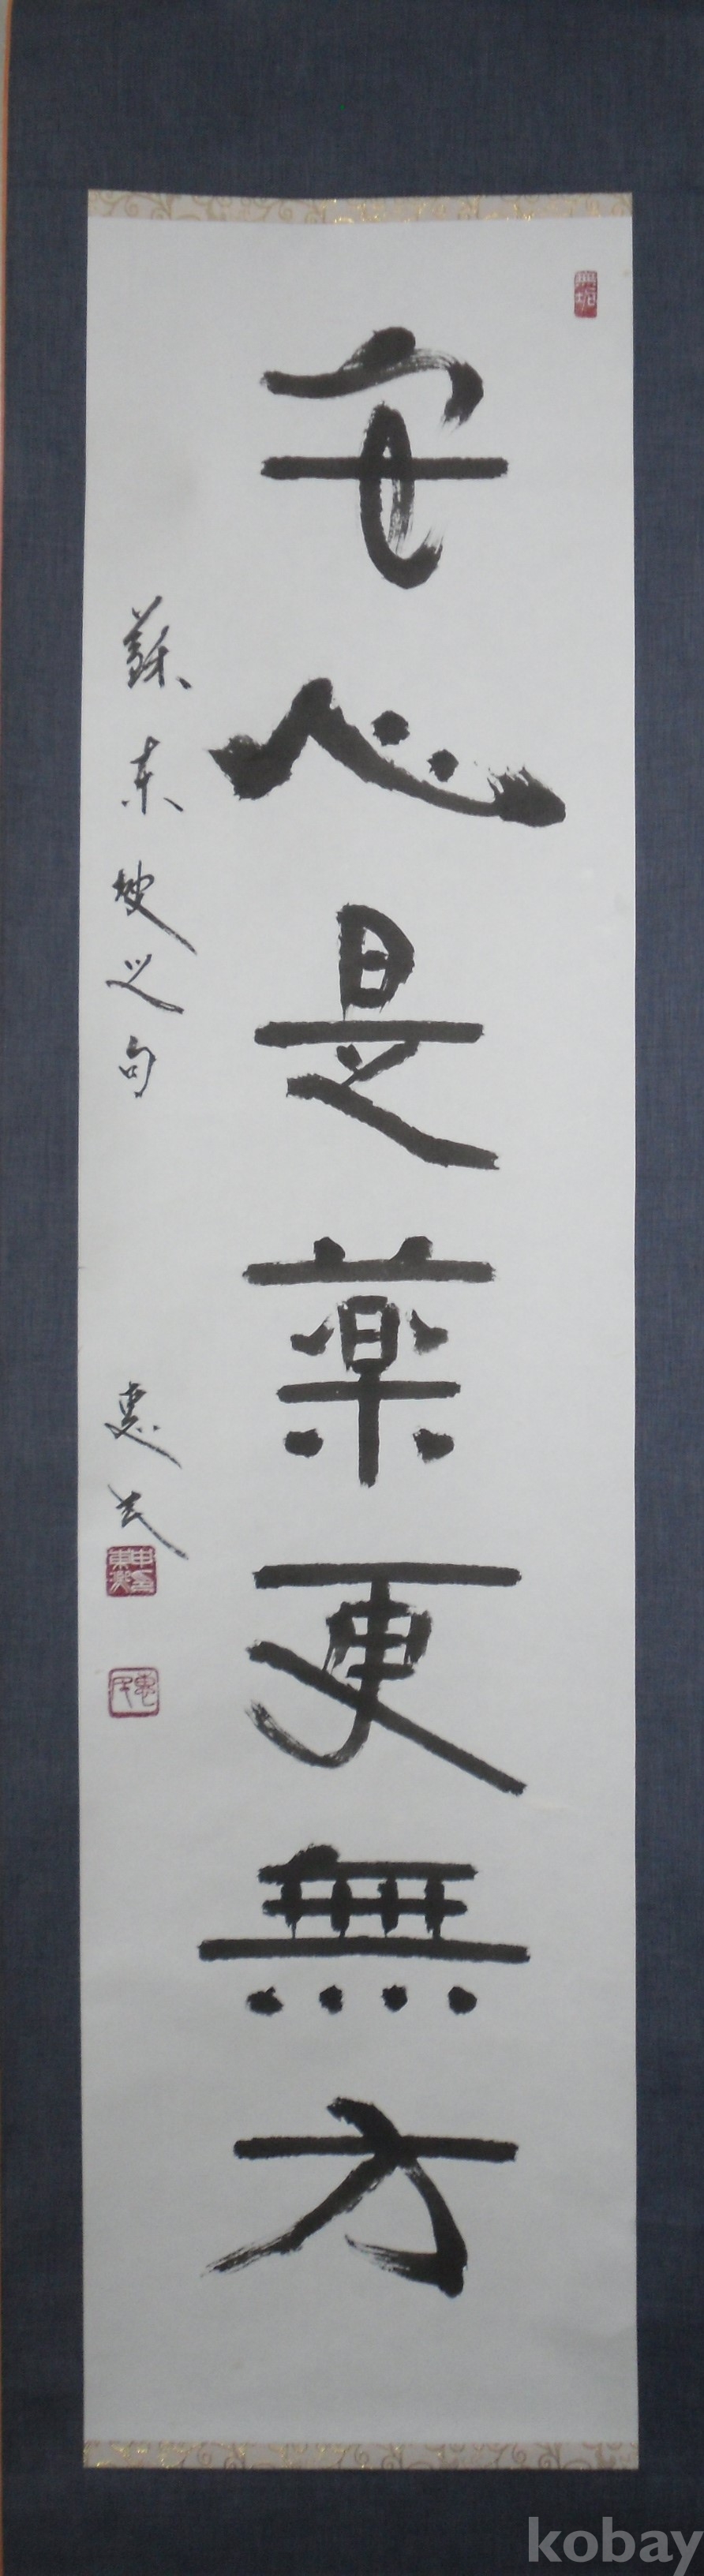 安心是薬更無方
蘇東坡之句
kobay